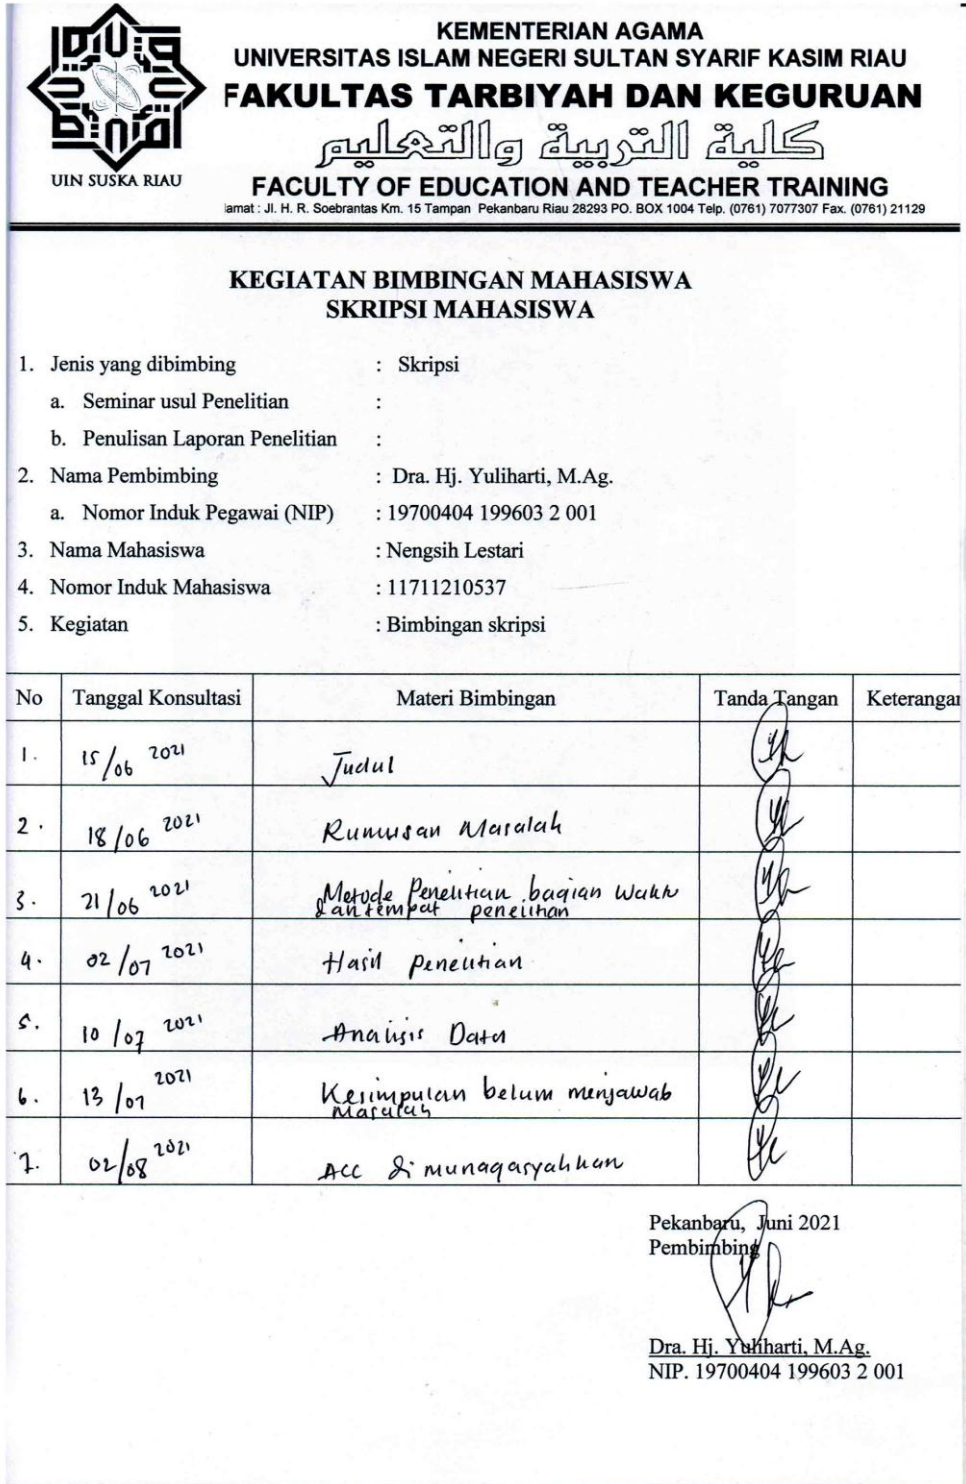 KEMENTERIAN AGAMA
UNIVERSITAS ISLAM NEGERI SULTAN SYARIF KASIM RIAU
FAKULTAS TARBIYAH DAN KEGURUAN
كلية التربية والتعليم
FACULTY OF EDUCATION AND TEACHER TRAINING
UIN SUSKA RIAU
lamat : Jl. H. R. Soebrantas Km. 15 Tampan Pekanbaru Riau 28293 PO. BOX 1004 Telp. (0761) 7077307 Fax. (0761) 21129
KEGIATAN BIMBINGAN MAHASISWA
SKRIPSI MAHASISWA
1. Jenis yang dibimbing : Skripsi
a. Seminar usul Penelitian :
b. Penulisan Laporan Penelitian :
2. Nama Pembimbing : Dra. Hj. Yuliharti, M.Ag.
a. Nomor Induk Pegawai (NIP) : 19700404 199603 2 001
3. Nama Mahasiswa : Nengsih Lestari
4. Nomor Induk Mahasiswa : 11711210537
5. Kegiatan : Bimbingan skripsi
No Tanggal Konsultasi Materi Bimbingan Tanda Tangan Keterangan
1. 15/06 2021 Judul
2. 18/06 2021 Rumusan Masalah
3. 21/06 2021 Metode Penelitian bagian waktu
dan tempat penelitian
4. 02/07 2021 Hasil penelitian
5. 10/07 2021 Analisis Data
6. 13/07 2021 Kesimpulan belum menjawab
Masalah
7. 02/08 2021 ACC di munaqasyahkan
Pekanbaru, Juni 2021
Pembimbing
Dra. Hj. Yuliharti, M.Ag.
NIP. 19700404 199603 2 001